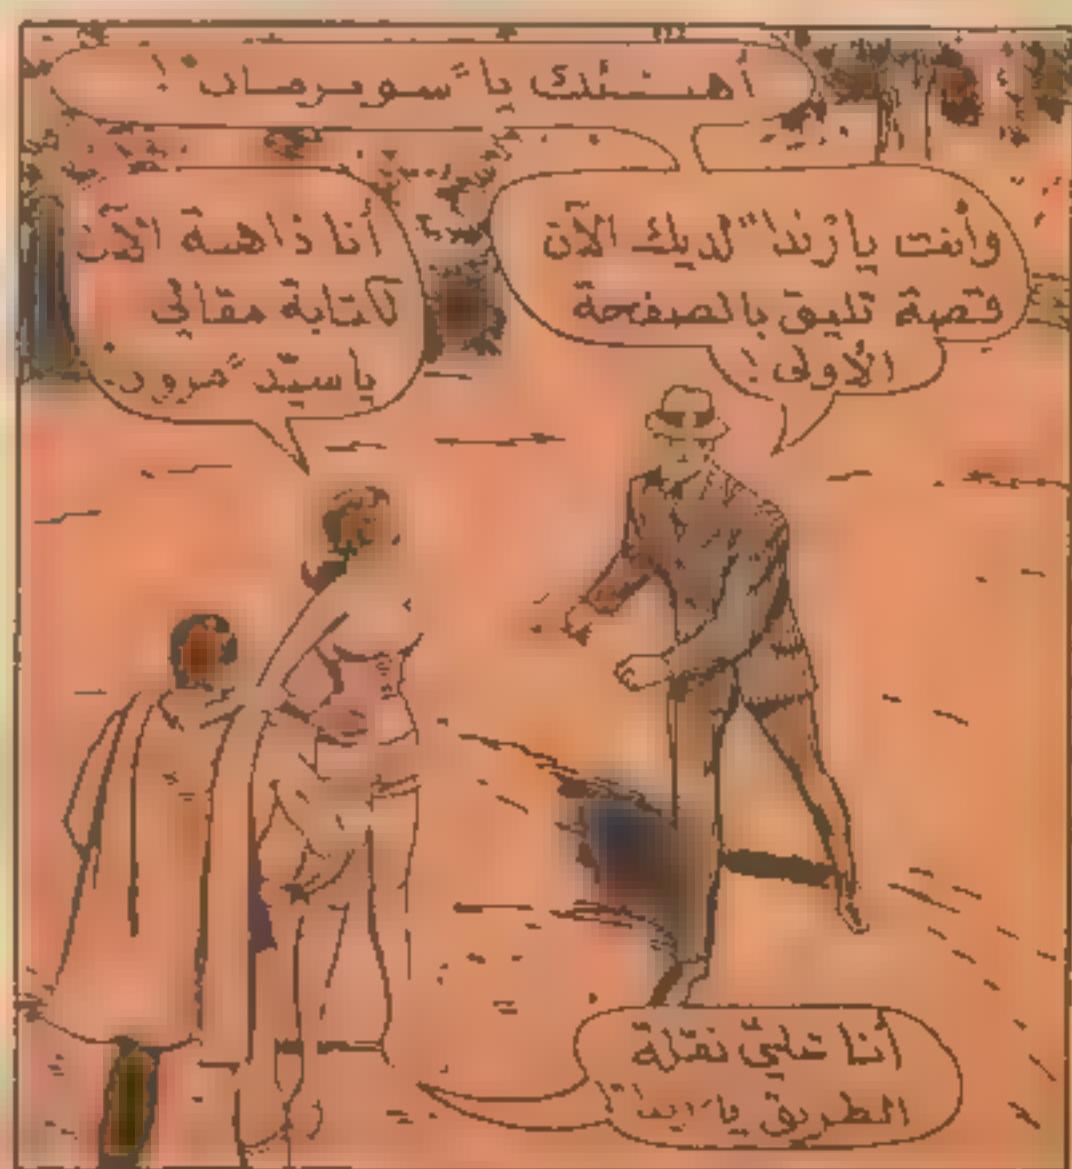 أهنئك يا "سوبرمان" !
وأنت يا "رندا" لديك الآن
قصة تليق بالصفحة
الأولى !
أنا ذاهبة الآن
لكتابة مقالي
يا سيّد
أنا على
الطريق يا